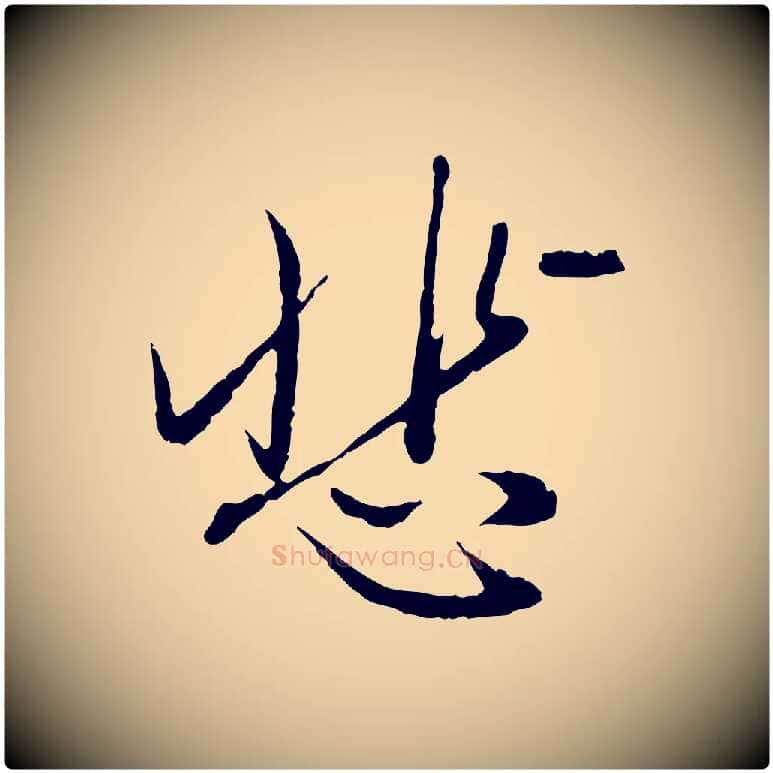 悲
Shufawang.CN